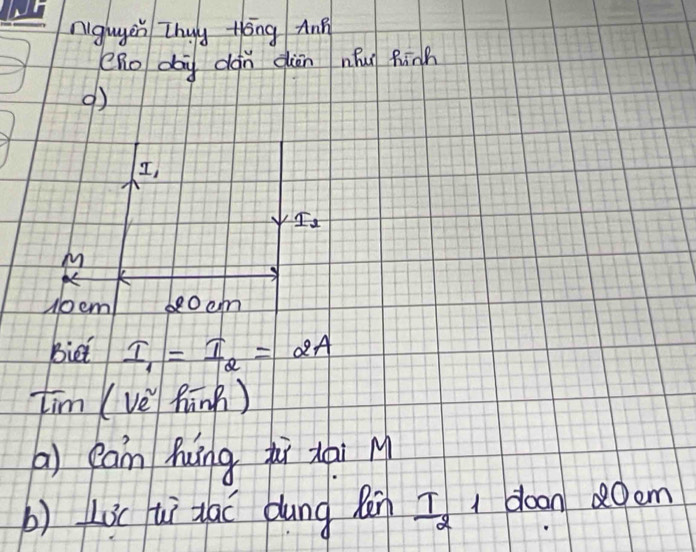 Nguyễn Thuý Hồng Anh
Cho dây dẫn điện như hình
a)
I₁
I₂
M
10cm 20cm
Biết I₁ = I₂ = 2A
Tìm (vẽ hình)
a) Cảm hứng từ tại M
b) Lực từ tác dụng lên I₂ 1 đoạn 20cm